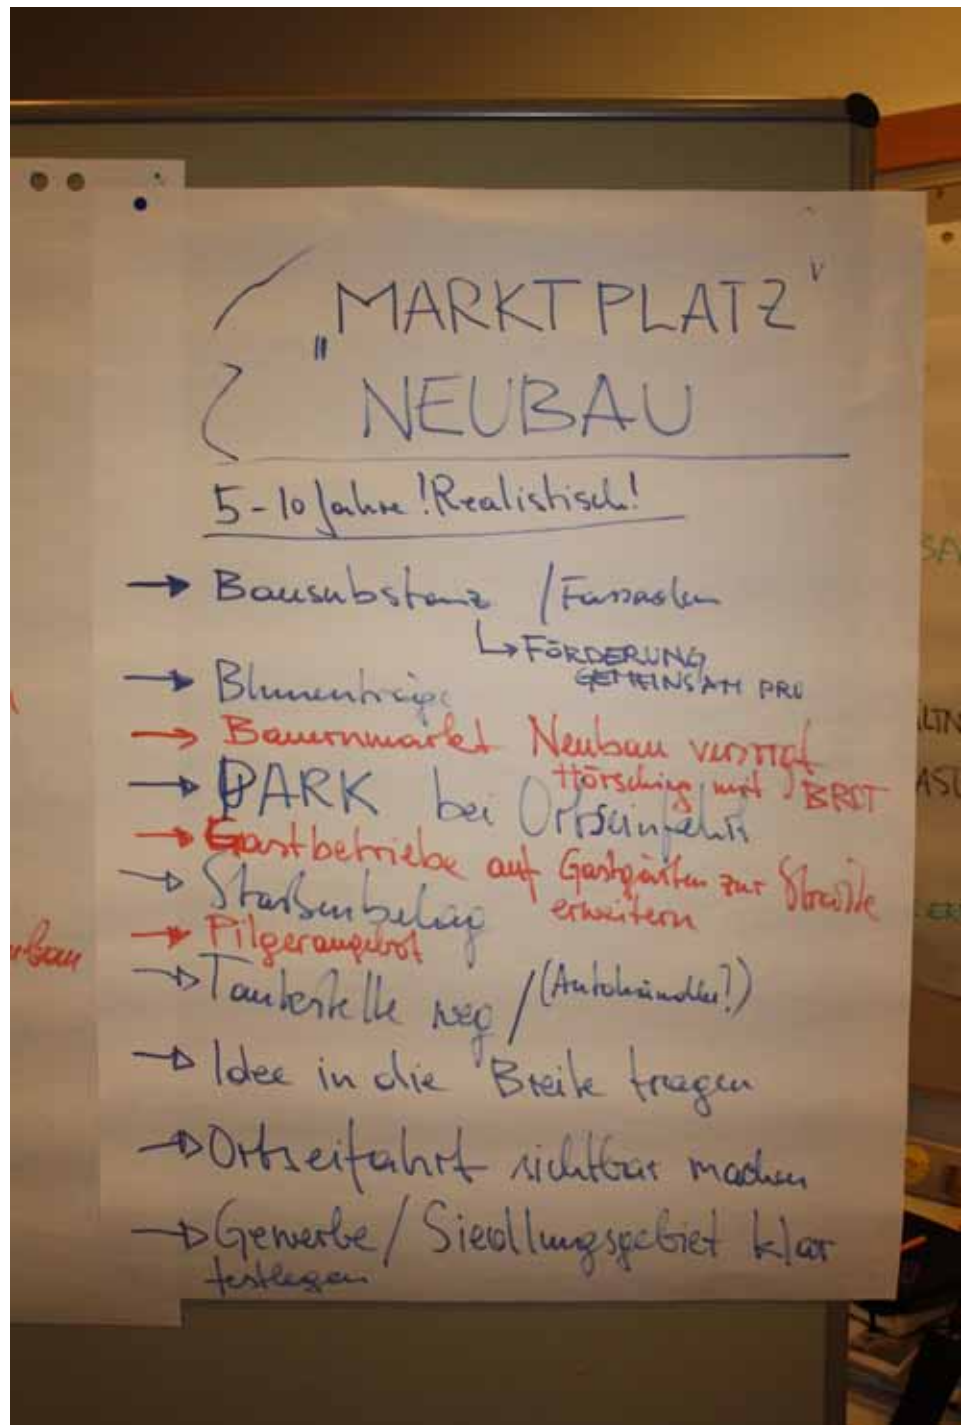 „MARKTPLATZ"
NEUBAU
5-10 Jahre! Realistisch!
→ Bausubstanz / Fassaden
↳ FÖRDERUNG
GEMEINSAM PRO
→ Blumentröge
→ Bauernmarkt Neubau versorgt
Hörsching mit BROT
→ PARK bei Ortseinfahrt
→ Gastbetriebe auf Gastgärten zur Straße
erweitern
→ Staßenbelag
→ Pilgerangebot
→ Tankstelle weg / (Autohändler?)
→ Idee in die Breite tragen
→ Ortseifahrt sichtbar machen
→ Gewerbe / Siedlungsgebiet klar
festlegen